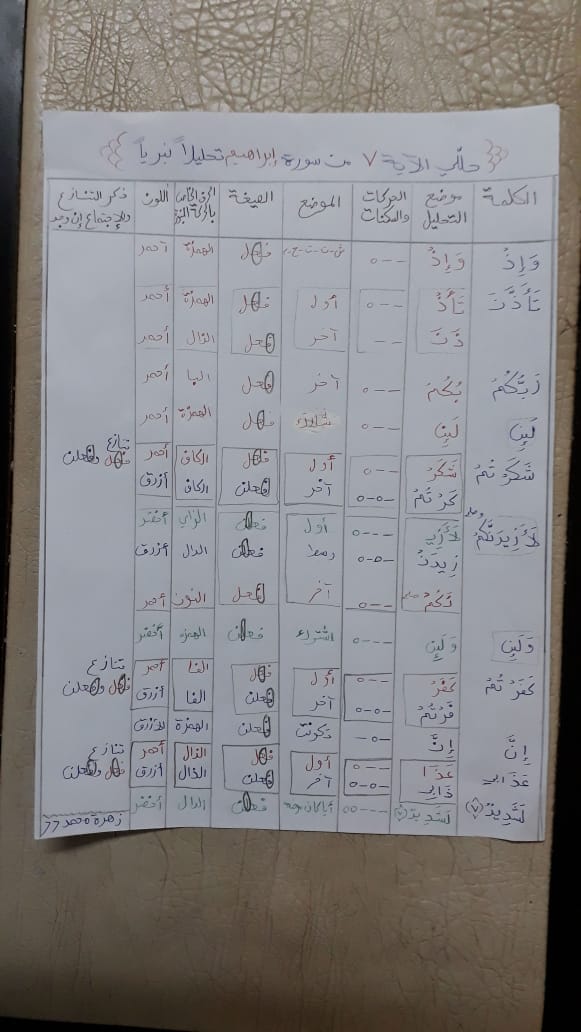 حللي الآية ٧ من سورة إبراهيم تحليلاً نبرياً
الكلمة موضع التحليل الحركات والسكنات الموضع الصيغة اللون ذكر التنازع والاجتماع إن وجد
وَإِذْ وَإِذْ --o فعل الهمزة أحمر
تَأَذَّنَ تَأَذْ --o أول فعل الهمزة أحمر
ذَّنَ -- آخر فعل الذال أحمر
رَبُّكُمْ بُّكُمْ --o آخر فعل البا أحمر
لَئِن لَئِن --o فعل الهمزة أحمر
شَكَرْتُمْ شَكَرْ --o أول فعل الكاف أحمر تنازع فعل وفعلن
كَرْتُمْ -o-o آخر فعلن الكاف أزرق
لَأَزِيدَنَّكُمْ لَأَزِيـ ---o أول فعلن الزاي أخضر
زِيدَنْ -o-o وسط فعلن الدال أزرق
نَّكُمْ --o آخر فعل النون أحمر
وَلَئِن وَلَئِن ---o فعلن الهمزة أخضر
كَفَرْتُمْ كَفَرْ --o أول فعل الفا أحمر تنازع فعل وفعلن
فَرْتُمْ -o-o آخر فعلن الفا أزرق
إِنَّ إِنَّ -o- فعلن الهمزة الأزرق
عَذَابِي عَذَا --o أول فعل الذال أحمر تنازع فعل وفعلن
ذَابِي -o-o آخر فعلن الذال أزرق
لَشَدِيدٌ ٧ لَشَدِيدْ ٧ ---oo فعلن الدال أخضر
زهرة محمد